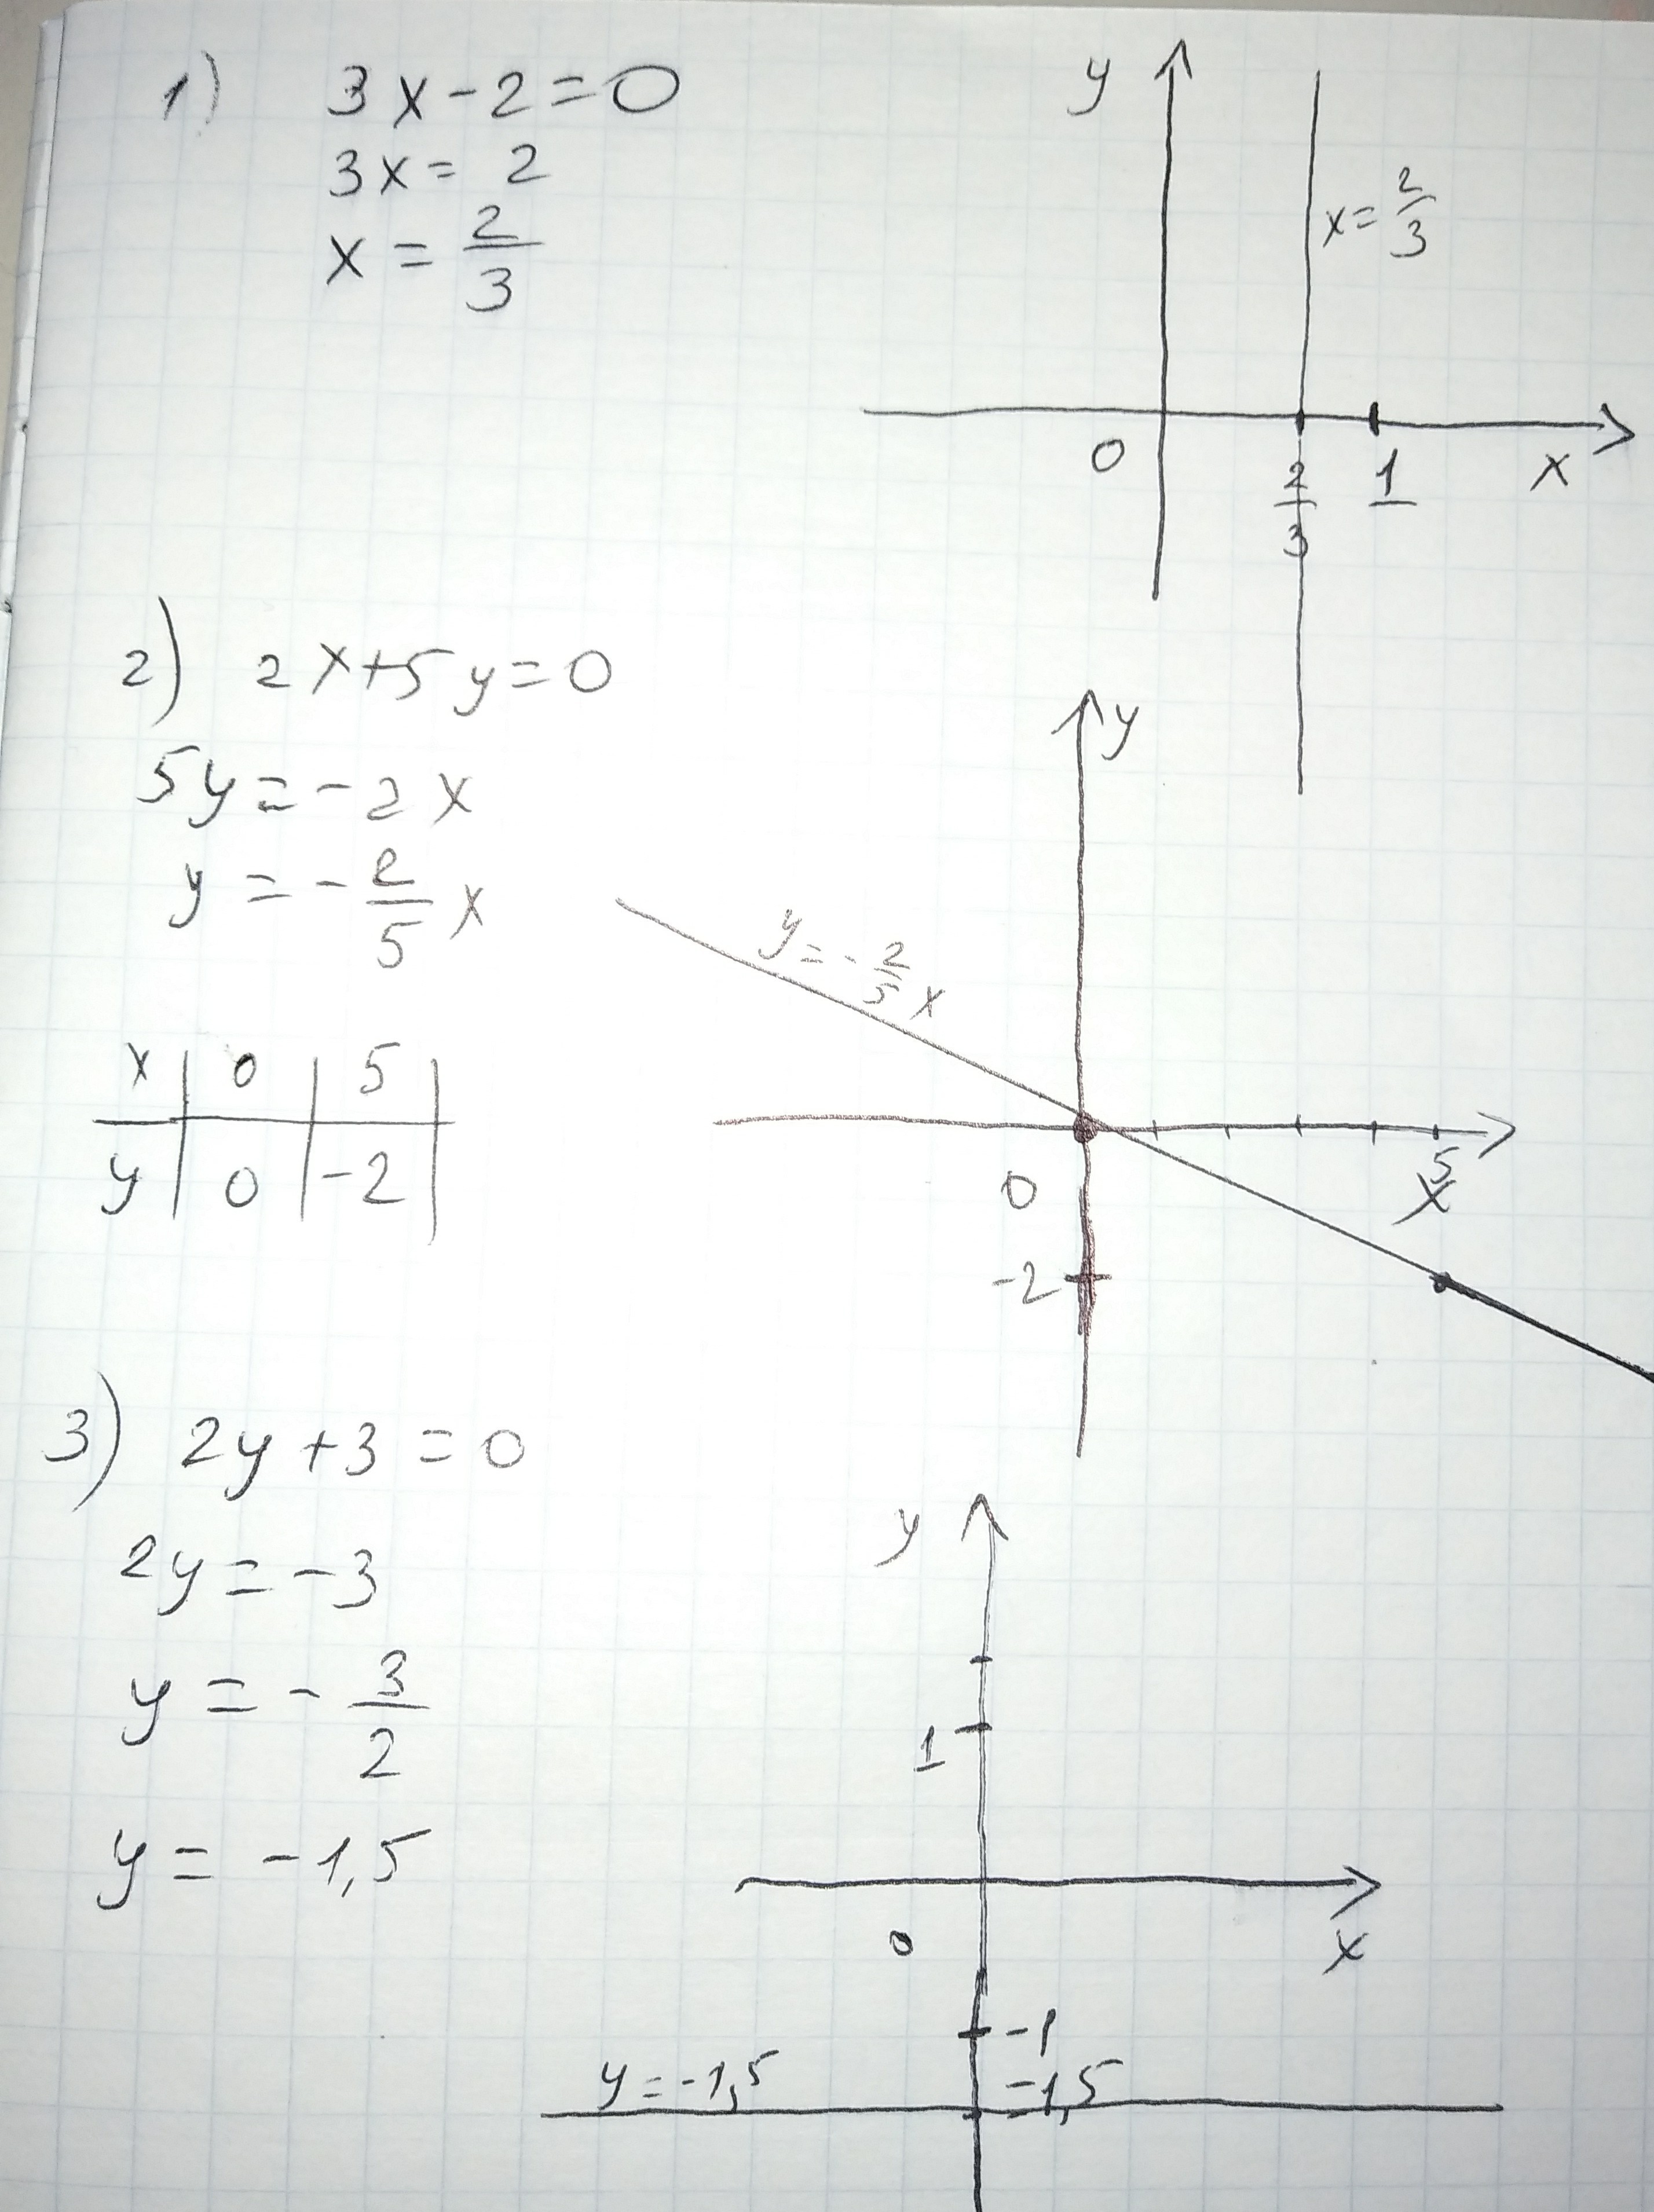 1) 3x-2=0
3x= 2
x = 2/3
y
x=2/3
0
2/3
1
x
2) 2x+5y=0
5y=-2x
y = -2/5 x
x | 0 | 5 |
y | 0 | -2 |
y
y=-2/5 x
0
5
x
-2
3) 2y+3=0
2y=-3
y = -3/2
y = -1,5
y
1
0
x
-1
y=-1,5
-1,5